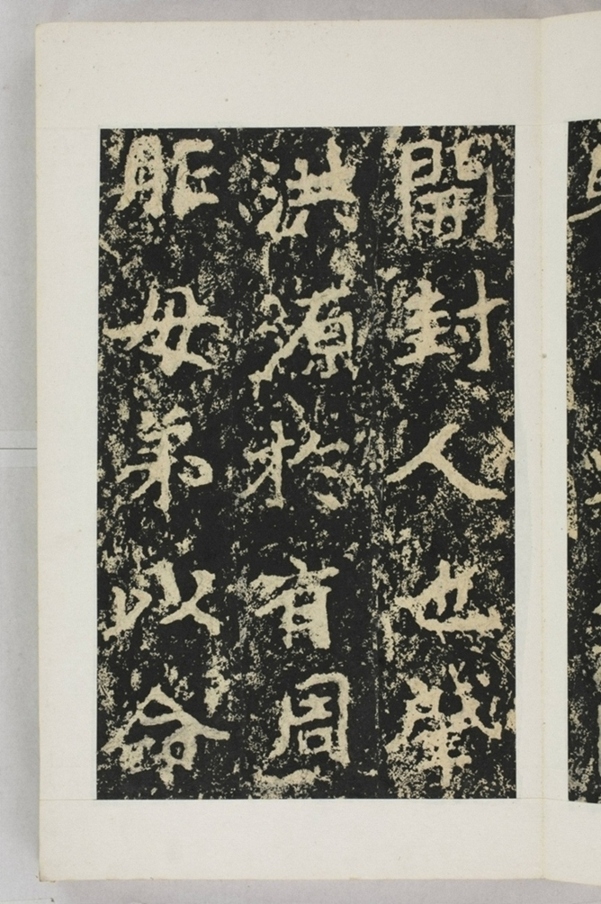 開封人也肇
洪源於有周
胙母弟以命